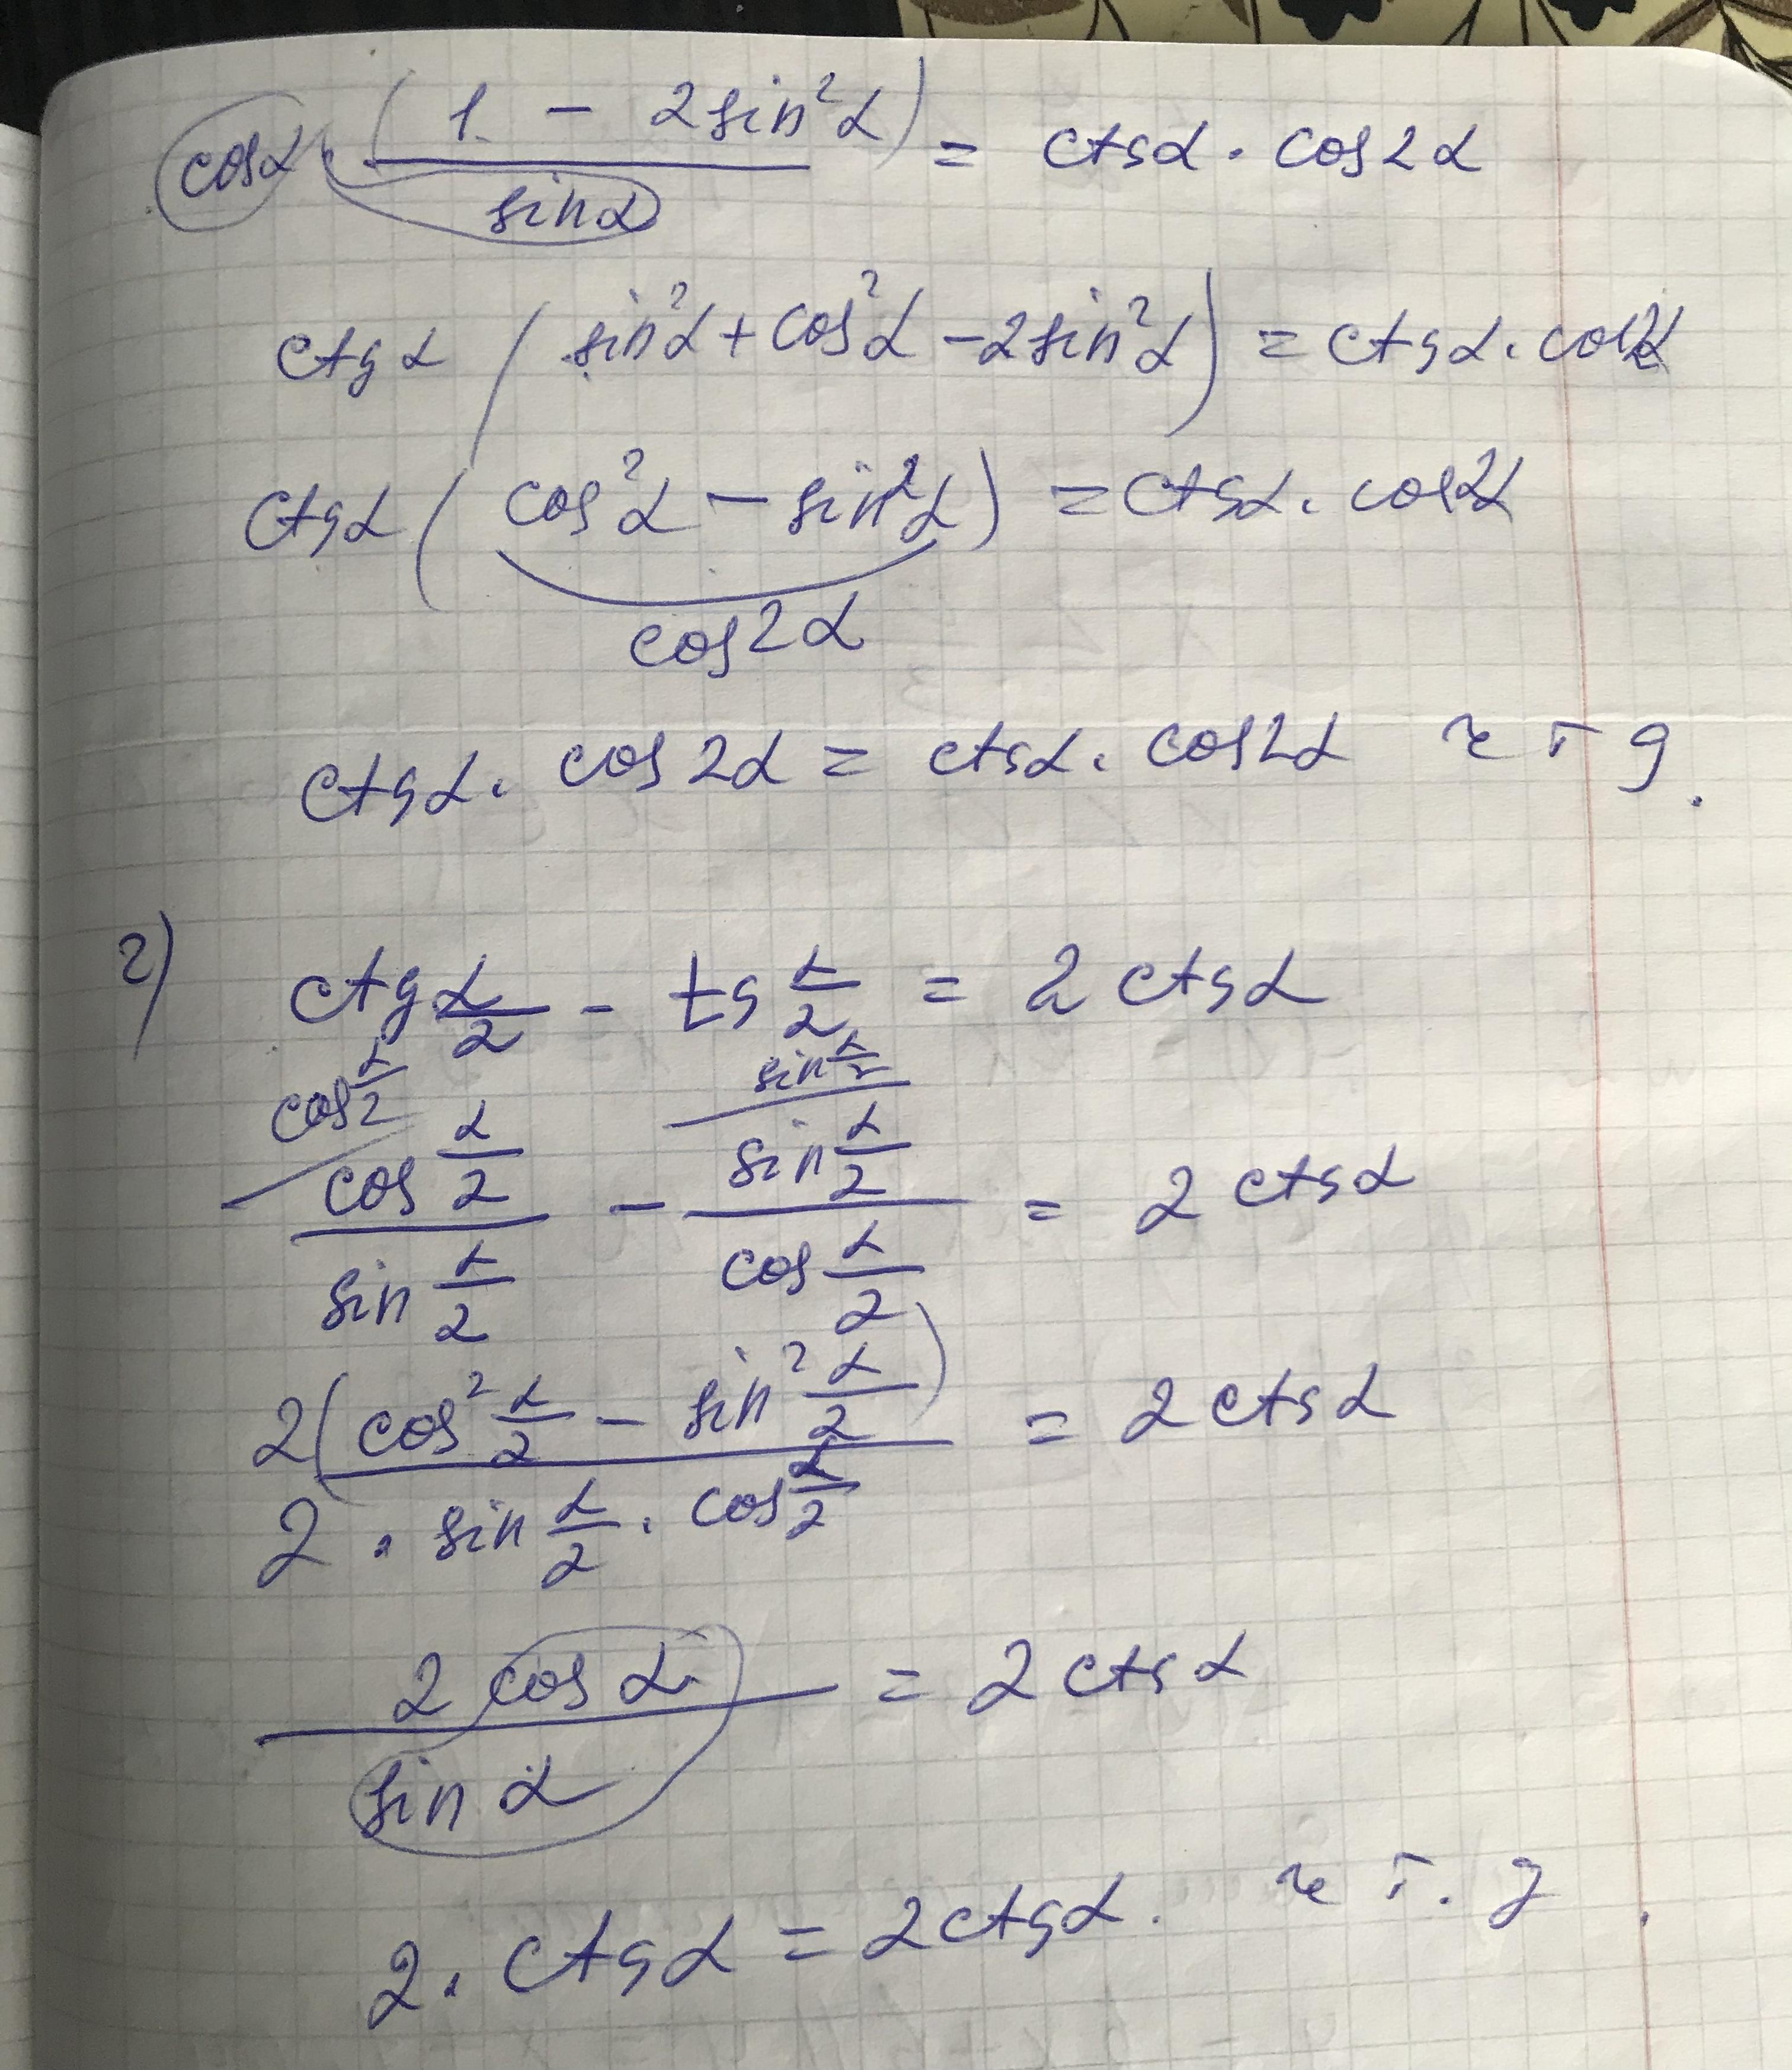 cosα · (1 - 2sin²α) / sinα = ctgα · cos2α
ctgα (sin²α + cos²α - 2sin²α) = ctgα · cos2α
ctgα (cos²α - sin²α) = ctgα · cos2α
cos2α
ctgα · cos2α = ctgα · cos2α ч т д.
г) ctg α/2 - tg α/2 = 2 ctgα
cos α/2 sin α/2
cos α/2 / sin α/2 - sin α/2 / cos α/2 = 2 ctgα
2(cos² α/2 - sin² α/2) / 2 · sin α/2 · cos α/2 = 2 ctgα
2 cos α / sin α = 2 ctgα
2 · ctgα = 2ctgα. ч т. д.